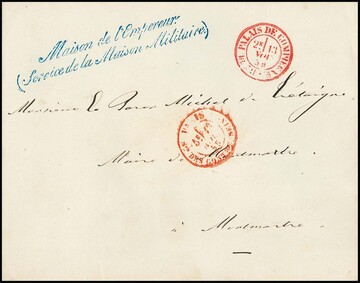 Maison de l'Empereur
(Service de la Maison Militaire)
Bau DU PALAIS DE COMPIEGNE
2E 13
NOV
59
Monsieur Le Baron Michel de Trétaigne
PARIS
Maire de Montmartre
à Montmartre